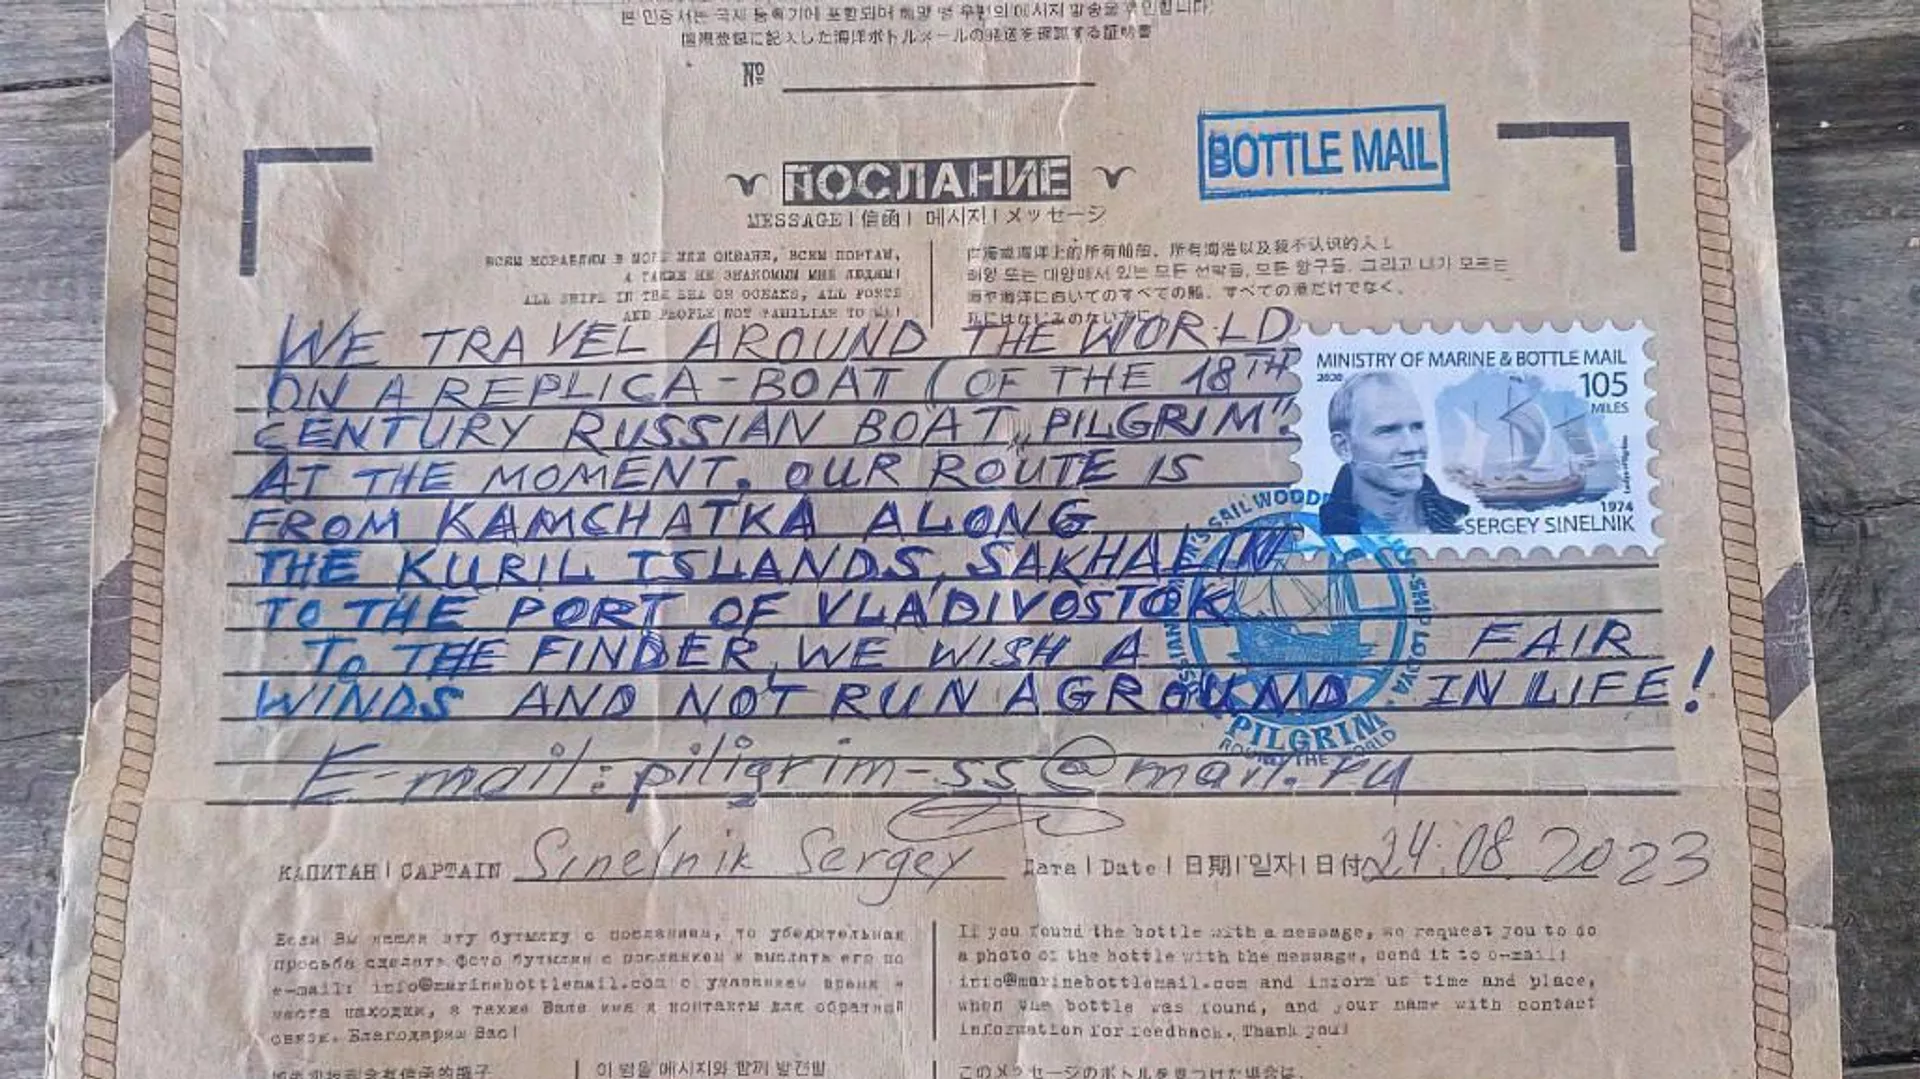 본 인증서는 국제 등록기에 포함되며 해양 병 우편의 메시지 발송을 확인합니다.
国際登録に記入した海洋ボトルメールの発送を確認する証明書
№
BOTTLE MAIL
ПОСЛАНИЕ
MESSAGE | 信函 | 메시지 | メッセージ
ВСЕМ КОРАБЛЯМ В МОРЕ ИЛИ ОКЕАНЕ, ВСЕМ ПОРТАМ,
А ТАКЖЕ НЕ ЗНАКОМЫМ МНЕ ЛЮДЯМ!
ALL SHIPS IN THE SEA OR OCEANS, ALL PORTS
AND PEOPLE NOT FAMILIAR TO ME!
海或海洋上的所有船舶、所有海港以及我不认识的人!
해양 또는 대양에서 있는 모든 선박들, 모든 항구들, 그리고 내가 모르는
海や海洋においてのすべての船、すべての港だけでなく、
WE TRAVEL AROUND THE WORLD
ON A REPLICA-BOAT (OF THE 18TH
CENTURY RUSSIAN BOAT „PILGRIM".
AT THE MOMENT, OUR ROUTE IS
FROM KAMCHATKA ALONG
THE KURIL ISLANDS, SAKHALIN
TO THE PORT OF VLADIVOSTOK
TO THE FINDER, WE WISH A FAIR
WINDS AND NOT RUN AGROUND IN LIFE!
E-mail: piligrim-ss@mail.ru
MINISTRY OF MARINE & BOTTLE MAIL
2020
105
MILES
1974
SERGEY SINELNIK
SAIL WOODEN
SHIP LADYA
PILGRIM
ROUND THE WORLD
КАПИТАН | CAPTAIN Sinelnik Sergey Дата | Date | 日期 | 일자 | 日付 24.08.2023
Если Вы нашли эту бутылку с посланием, то убедительная
просьба сделать фото бутылки с посланием и выслать его по
e-mail: info@marinebottlemail.com с указанием время и
места находки, а также Ваше имя и контакты для обратной
связи. Благодарим Вас!
If you found the bottle with a message, we request you to do
a photo of the bottle with the message, send it to e-mail:
info@marinebottlemail.com and inform us time and place,
when the bottle was found, and your name with contact
information for feedback. Thank you!
이 병을 메시지와 함께 발견함
このメッセージのボトルを見つけた場合は、